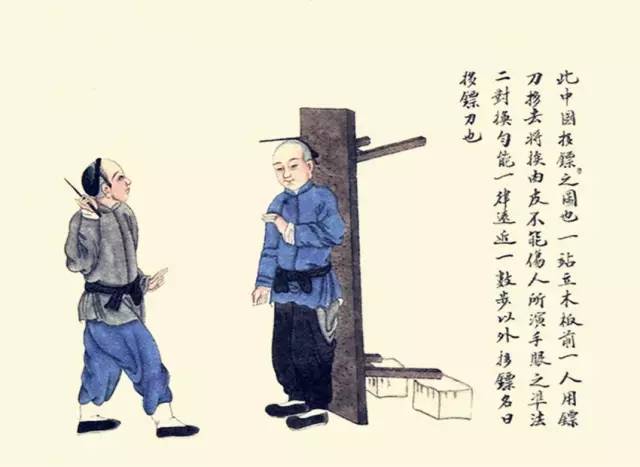 此中国扔鏢之圖也一站立木板前一人用鏢
刀扔去將挨肉皮不能傷人所演手眼之准法
二對換勻能一律遠近一数步以外扔鏢名曰
扔鏢刀也